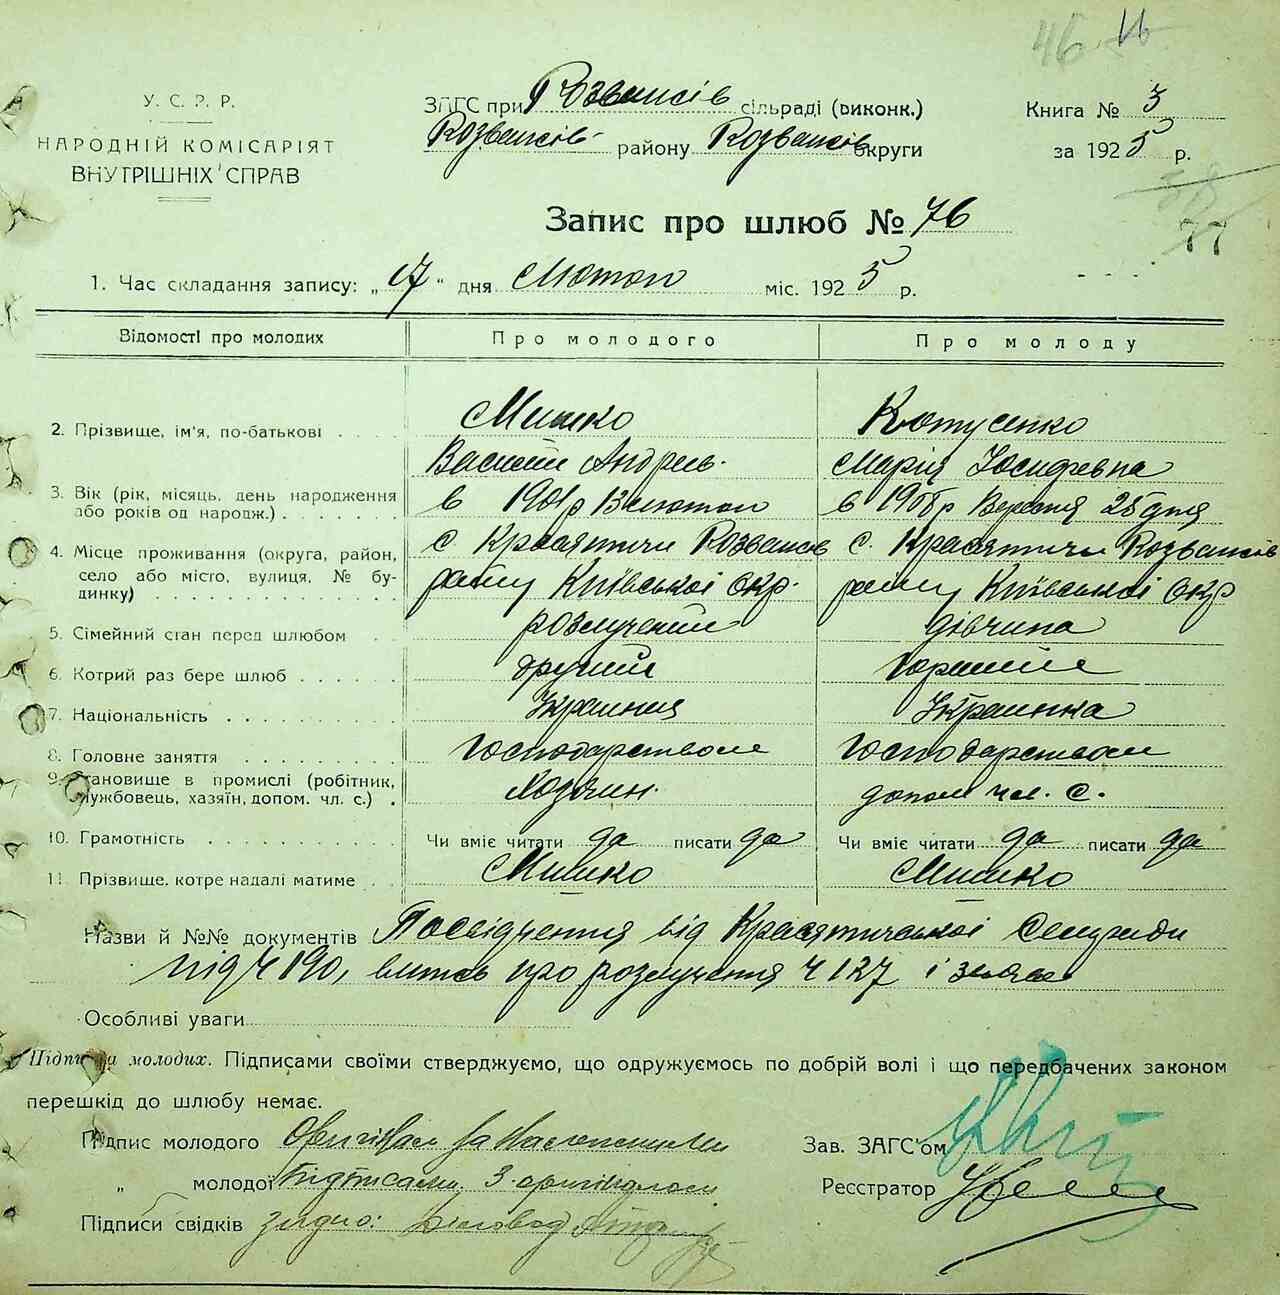 46
У. С. Р. Р.
НАРОДНІЙ КОМІСАРІЯТ
ВНУТРІШНІХ СПРАВ
ЗАГС при Розважів сільраді (виконк.)
Розважів району Розважів округи
Книга № 3
за 1925 р.
77
Запис про шлюб № 76
1. Час складання запису: „17“ дня Лютого міс. 1925 р.
Відомості про молодих
Про молодого
Про молоду
2. Прізвище, ім'я, по-батькові
Мишко
Василь Андрев.
Котусенко
Марія Йосифевна
3. Вік (рік, місяць, день народження або років од народж.)
в 1901 р 13 лютого
в 1906 р Вересня 25 дня
4. Місце проживання (округа, район, село або місто, вулиця, № будинку)
с Красятичи Розважів
району Київської окр.
с. Красятичи Розважів
району Київської окр
5. Сімейний стан перед шлюбом
розлучений
дівчина
6. Котрий раз бере шлюб
другий
первий
7. Національність
Украинец
Украинка
8. Головне заняття
господарством
господарством
9. Становище в промислі (робітник, службовець, хазяїн, допом. чл. с.)
Хозяин.
допом чл. с.
10. Грамотність
Чи вміє читати да писати да
Чи вміє читати да писати да
11. Прізвище, котре надалі матиме
Мишко
Мишко
Назви й №№ документів Посвідчення від Красятичської Сельради
під Ч 190, витяг про розлучення Ч 127 і
Особливі уваги
Підписи молодих. Підписами своїми стверджуємо, що одружуємось по добрій волі і що передбачених законом
перешкід до шлюбу немає.
Підпис молодого Оригінал за
„ молодої підписами. З оригіналом
Підписи свідків згідно: Діловод
Зав. ЗАГС'ом
Реєстратор